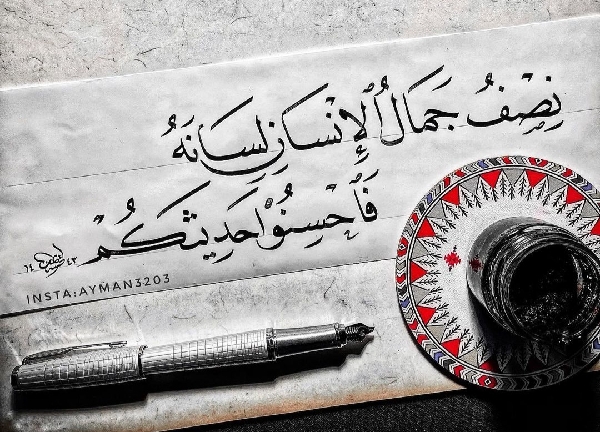 نِصْفُ جَمَالُ الْإِنْسَانِ لِسَانَهُ
فَأَحْسِنُوا حَدِيثَكُمْ
INSTA:AYMAN3203